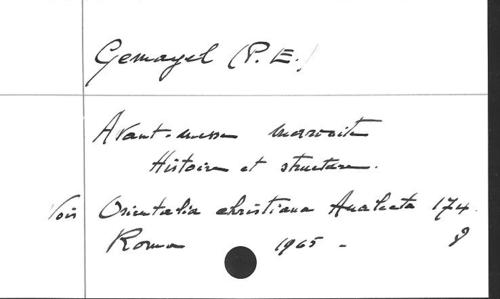 Gemayel (P. E.)
Avant-messe maronite
Histoire et structure.
Voir Orientalia christiana Analecta 174.
Roma 1965 -